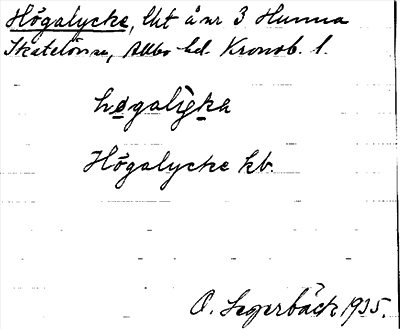 Högalycke, lht å nr 3 Hunna
Skatelövs sn, Allbo hd. Kronob. l.
høgalìka
Högalycke kb.
O. Segerbäck 1935.